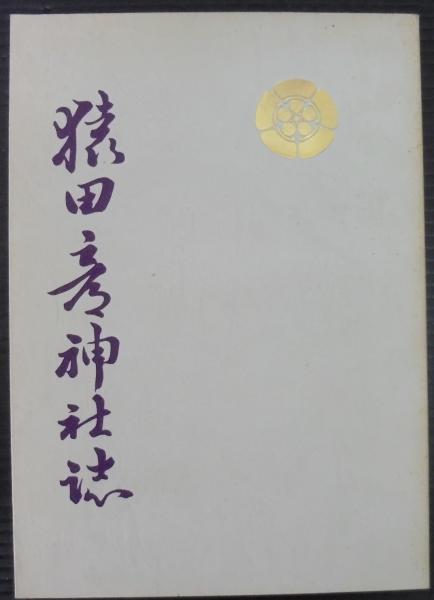 猿田彦神社誌